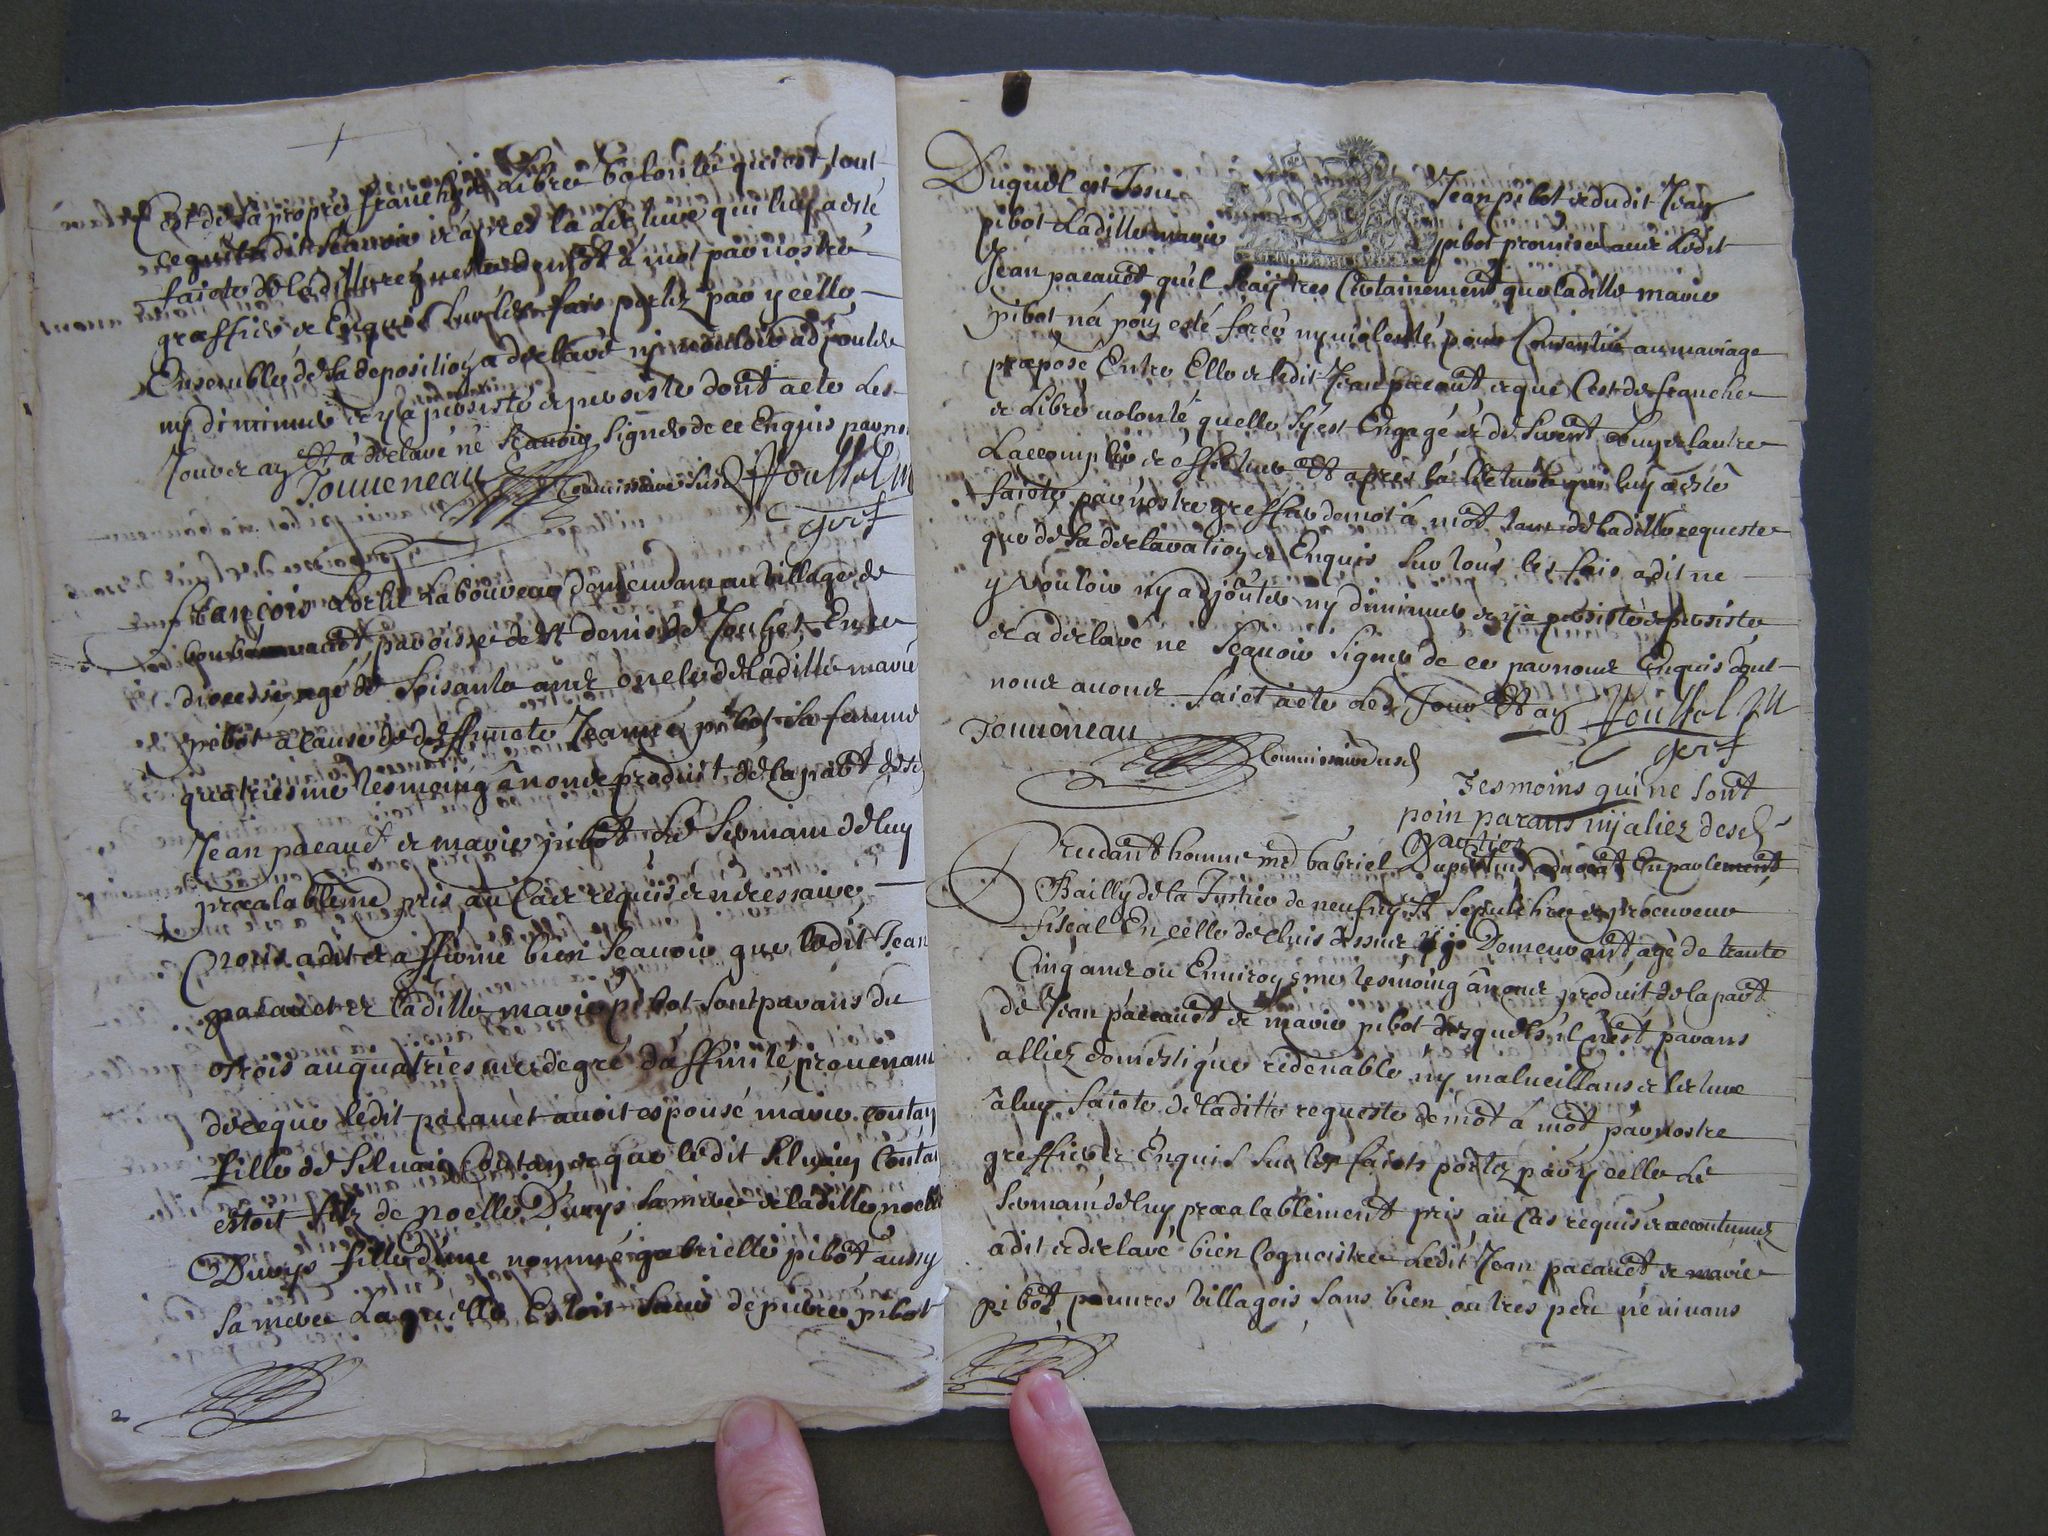 C'est de sa propre franche et Libre Volonté qui est tout
ce qu'il a dit scauoir et apres la lecture qui luy a esté
faicte de laditte requeste de mot à mot par nostre
greffier et Enquis sur les fais portez par ycelle
Ensemble de sa deposition a declaré n'y vouloir adjouter
ny diminuer et y a persisté et persiste dont acte les
Jour et an Et a declaré ne scauoir signer de ce Enquis par nous
Jouueneau Commissaire susd
greff
françois Laboureau demeurant au village de
parroisse de St denis de Jouhet En ce
diocesse agé de soisante ans oncle de laditte marie
pibot à cause de deffuncte Jeanne pibot sa femme
quatriesme tesmoing à nous produit de la part desd
Jean pacaud et marie pibot Le serment de luy
prealablement pris au cas requis et necessaire
Nous a dit et affirmé bien scauoir que ledit Jean
pacauet et laditte marie pibot sont parans du
trois au quatriesme degré d'affinité prouenant
de ce que ledit pacauet auoit espousé marie coutan
fille de Siluain Coutan et que ledit Siluain Coutan
estoit filz de noelle Durys sa mere et laditte noelle
Durys fille d'une nommé gabrielle pibot aussy
sa mere Laquelle Estoit seur de pierre pibot
2
Duquel est Issu Jean pibot et dudit Jean
pibot Laditte marie pibot promise auec Ledit
Jean pacauet qu'il scay tres Certainement que laditte marie
pibot n'a poin esté forcé ny violenté pour Consentir au mariage
proposé Entre Elle et ledit Jean pacauet et que C'est de franche
et Libre volonté quelle s'y est Engagé et desirent L'un et l'autre
L'accomplir et effectuer Et apres la lecture qui luy a esté
faicte par nostre greffier de mot à mot tant de laditte requeste
que de sa declaration et Enquis sur tous les fais a dit ne
y vouloir ny adjouter ny diminuer et y a persisté et persiste
et a declaré ne scauoir signer de ce par nous Enquis dont
nous auons faict acte Les Jour Et an
Jouueneau Commissaire susd
greff
Tesmoins qui ne sont
poin parans ny aliez desd
parties
Prudant homme me Gabriel aduocat En parlement
Bailly de la Justice de neufuy St Sepulchre et procureur
fiscal En celle de cluis dessus y Demeurant agé de trante
Cinq ans ou Enuiron 5me tesmoing à nous produit de la part
de Jean pacauet et marie pibot desquels il n'est parans
alliez domestique redeuable ny malueillans et lecture
à luy faicte de laditte requeste de mot à mot par nostre
greffier et Enquis sur les faicts portez par ycelle Le
serment de luy prealablement pris au cas requis et accoutumez
a dit et declaré bien Cognoistre Ledit Jean pacauet et marie
pibot pauures villagois sans bien ou tres peu ne viuans